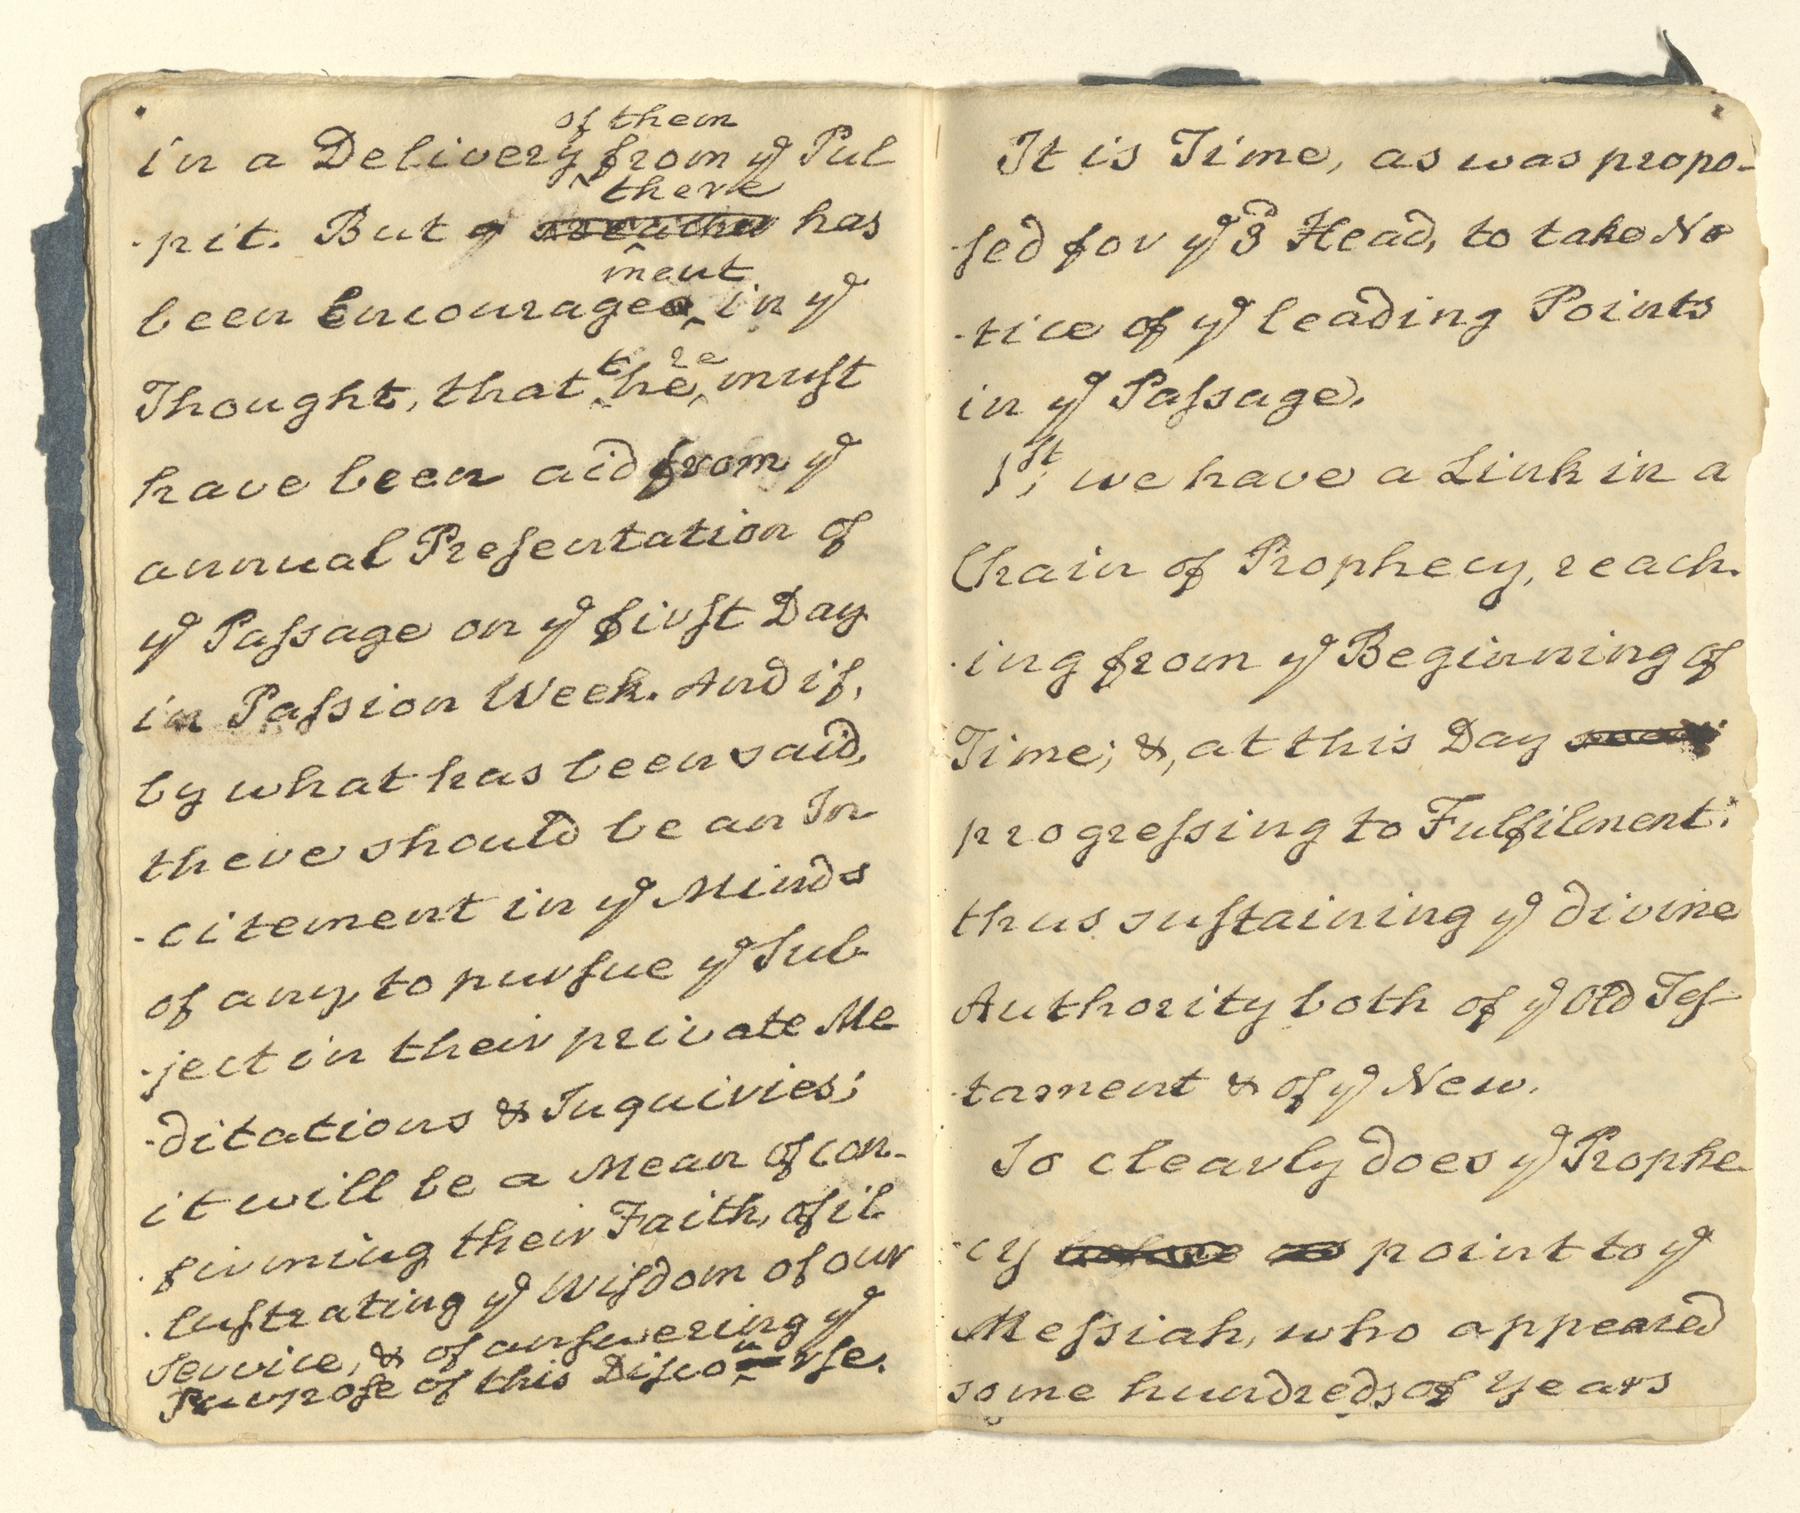 of them
in a Delivery from yͤ Pul
there
-pit. But yͤ preacher has
ment
been Encouraged in yͤ
t re
Thought, that he must
have been aid from yͤ
annual Presentation of
yͤ Passage on yͤ first Day
in Passion Week. And if,
by what has been said,
there should be an In
-citement in yͤ Minds
of any, to pursue yͤ Sub
-ject in their private Me
-ditations & Inquiries;
it will be a Mean of con-
-firming their Faith, of il
-lustrating yͤ Wisdom of our
Service, & of answering yͤ
Purpose of this Discourse.
It is Time, as was propo-
sed for yͤ 3ᵈ Head, to take No
-tice of yͤ leading Points
in yͤ Passage.
1st; we have a Link in a
Chain of Prophecy, reach-
-ing from yͤ Beginning of
Time; &, at this Day
progressing to Fulfilment:
thus sustaining yͤ divine
Authority both of yͤ Old Tes-
-tament & of yͤ New.
So clearly does yͤ Prophe-
-cy before as point to yͤ
Messiah, who appeared
some hundreds of Years